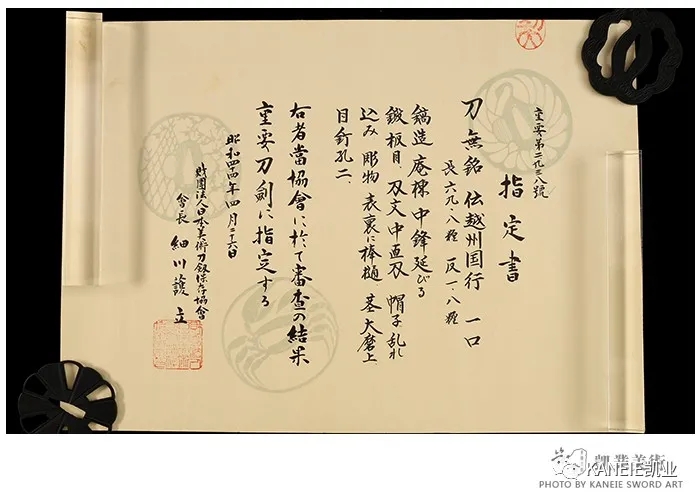 重要第二九三八號
指定書
刀 無銘 伝越州国行 一口
長六九・八糎 反一・八糎
鎬造 庵棟 中鋒延びる
鍛板目 刃文中直刃 帽子乱れ
込み 彫物 表裏に棒樋 茎大磨上
目釘孔二、
右者當協會に於て審査の結果
重要刀劍に指定する
昭和四四年四月二十六日
財團法人日本美術刀劔保存協會
會長 細川護立
凯業美術
KANEIE凯业
PHOTO BY KANEIE SWORD ART